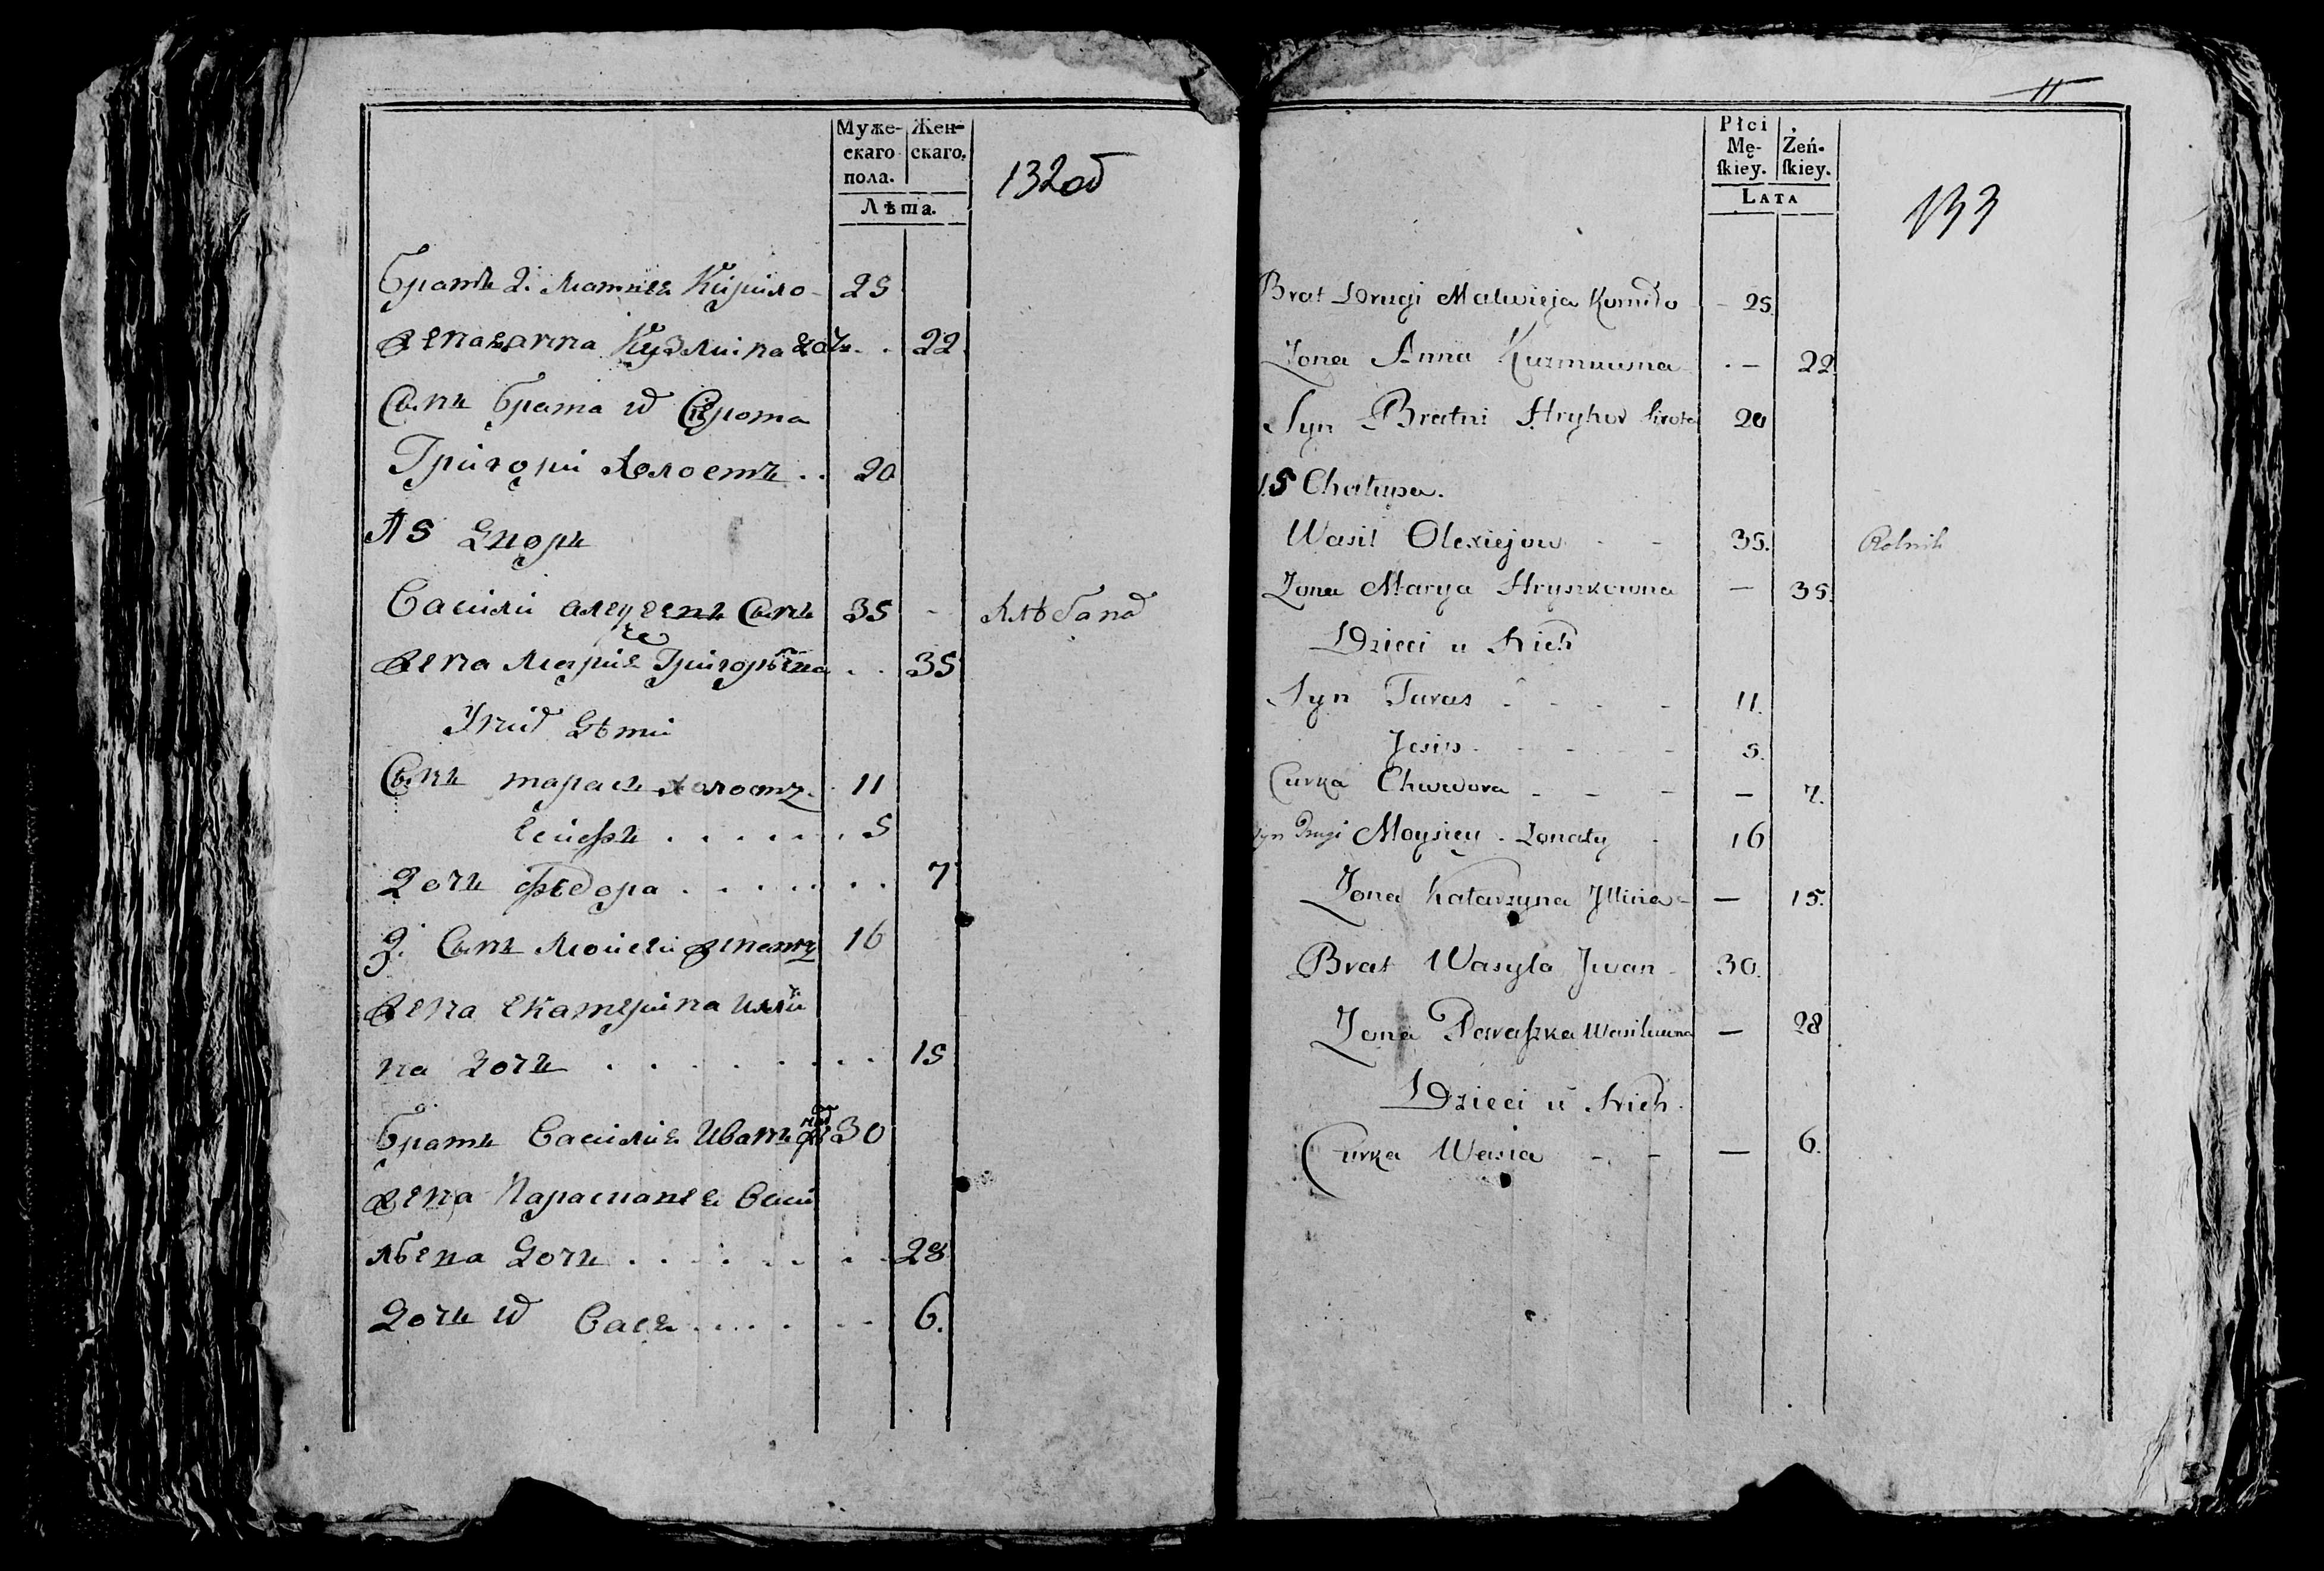 Муже-
скаго
пола.
Жен-
скаго.
Лѣта.
132об
Братъ 2. Матвея Кирило 25
жена Анна Кузмина дочь . . 22
Сынъ брата
Григори холостъ . . 20
15 Дворъ
Васили Сынъ 35 -
жена Мария Григорьева . . 35
У них Дѣти
Сынъ тарасъ холостъ 11
Есифъ . . . . . . 5
Дочь Фѣдора . . . . . . . 7
2. Сынъ Моисеи женатъ 16
жена екатерина Ильи
на Дочь . . . . . . . 15
братъ Василия Иванъ 30
жена Парасковея Васи
льева Дочь . . . . . . . 28
Дочь Вася . . . . - - 6.
Płci
Mę-
ſkiey.
Żeń-
ſkiey.
LATA
11
133
Brat Drugi Matwieja - 25.
Zona Anna Kuzmiuwna . - 22.
Syn Bratni Hryhor Sirota 20
15 Chatupa.
Wasil Olexiejow - - 35. Rolnik
Zona Marya Hryszkowna - 35.
Dzieci u Nich
Syn Taras - - - - 11.
Josip - - - - - 5.
Curka Chwedora - - - - 7.
Syn Drugi Moysiey - Zonaty - 16
Zona Katarzyna Illina - - 15.
Brat Wasyla Jwan - 30.
Zona Paraszka Wasiluwna - 28
Dzieci u Nich.
Curka Wasia - - - 6.